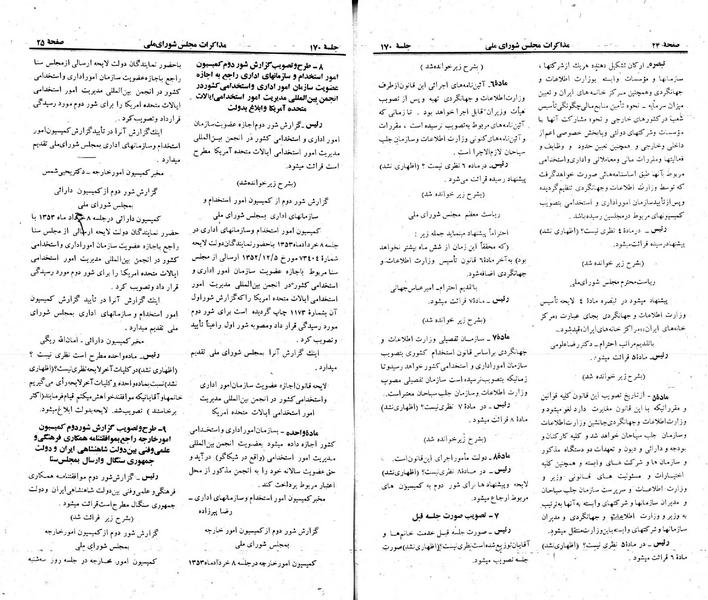 صفحه ۲۴ مذاکرات مجلس شورای ملی جلسه ۱۷۰
تبصره. ارکان تشکیل دهنده هریک ازشرکتها،
سازمانها و مؤسسات وابسته بوزارت اطلاعات و
جهانگردی وهمچنین مرکز خانه‌های ایران و تعیین
میزان سرمایه ـ نحوه تأمین منابع مالی چگونگی تأسیس
شعب درکشورهای خارجی و نحوه مشارکت آنها با
مؤسسات وشرکتهای دولتی وبابخش خصوصی اعم از
داخلی وخارجی و همچنین تعیین حدود و وظایف و
فعالیتها ومقررات مالی ومعاملاتی واداری واستخدامی
مربوط بآنها طبق اساسنامه‌هائی صورت خواهدگرفت
که توسط وزارت اطلاعات و جهانگردی تنظیم‌گردیده
وپس‌ازتأییدسازمان امورادادی و استخدامی بتصویب
کمیسیونهای مربوط درمجلسین رسیده‌باشد.
رئیس‌ـ در ماده ۴ نظری نیست؟ (اظهاری نشد)
پیشنهاد رسیده قرائت‌میشود.
(بشرح زیر خوانده شد)
ریاست‌محترم مجلس شورای‌ملی
پیشنهاد میشود در تبصره ماده ۴ لایحه تأسیس
وزارت اطلاعات و جهانگردی بجای عبارت «مرکز
خانه‌های ایران» «مراکز خانه‌های ایران» قیدشود.
باتقدیم مراتب احترام ـ دکتر رضا علومی
رئیس‌ـ ماده ۵ قرائت میشود.
(بشرح زیر خوانده شد)
ماده۵ـ ازتاریخ تصویب این قانون کلیه قوانین
و مقرراتی‌که با این قانون مغایرت دارد لغومیشود و
وزارت اطلاعات وجهانگردی جانشین وزارت اطلاعات
و سازمان جلب سیاحان خواهد شد و کلیه کارکنان و
بودجه و دارائی و دیون و تعهدات دو دستگاه مذکور
و سازمان ها و شرکت های وابسته و همچنین کلیه
اختیارات و مسئولیت های قانونی وزیر و
معاونان و سرپرست سازمان جلب سیاحان
و سازمانها و شرکتهای وابسته به‌آنها به‌ترتیب
به وزیر و وزارت اطلاعات و جهانگردی و مدیران
سازمانها وشرکتهای وابسته‌به‌این‌وزارت‌منتقل‌میشود.
رئیس‌ـ در ماده ۵ نظری نیست؟ (اظهاری‌نشد)
ماده ۶ قرائت میشود.
(بشرح زیر خوانده شد)
ماده۶ـ آئین‌نامه‌های اجرائی این قانون ازطرف
وزارت اطلاعات و جهانگردی تهیه وپس از تصویب
هیأت وزیران قابل اجرا خواهد بود. تا زمانی که
آئین‌نامه‌های مربوط به‌تصویب نرسیده است، مقررات
موجود در وزارت اطلاعات و سازمان جلب
سیاحان لازم‌الاجرا است.
رئیس‌ـ درماده ۶ نظری نیست؟ (اظهاری نشد)
پیشنهاد رسیده قرائت می‌شود.
(بشرح زیر خوانده شد)
ریاست معظم مجلس شورای ملی
احتراماً پیشنهاد مینماید جمله زیر:
(که محققاً این زمان از شش ماه بیشتر نخواهد
بود) به‌آخرماده ۶ قانون تأسیس وزارت اطلاعات و
جهانگردی اضافه‌شود.
باتقدیم احترام ـ امیرعباس جهانی
رئیس‌ـ ماده۷ قرائت میشود.
(بشرح زیر خوانده شد)
ماده۷ـ سازمان تفصیلی وزارت اطلاعات و
جهانگردی براساس قانون استخدام کشوری بتصویب
سازمان امورادادی و استخدامی کشور خواهد رسید و تا
زمانیکه بتصویب‌نرسیده است سازمان تفصیلی مصوب
وزارت اطلاعات و سازمان جلب سیاحان معتبراست.
رئیس‌ـ در ماده ۷ نظری نیست؟ (اظهاری‌نشد)
ماده ۸ قرائت میشود.
(بشرح زیر خوانده شد)
ماده۸ـ دولت مأمور اجرای این قانون‌است.
رئیس‌ـ در ماده ۸ نظری نیست؟ (اظهاری نشد)
لایحه وپیشنهاد ها را برای شور دوم به کمیسیون های
مربوط ارجاع میشود.
۷ ـ تصویب صورت جلسه قبل
رئیس‌ـ صورت جلسه قبل خدمت خانم‌ها و
آقایان‌توزیع‌شده‌است‌نظری‌نیست؟ (اظهاری‌نشد) صورت
جلسه تصویب میشود.
جلسه ۱۷۰ مذاکرات مجلس شورای ملی صفحه ۲۵
۸ ـ طرح‌وتصویب گزارش شور دوم کمیسیون
امور استخدام و سازمانهای اداری راجع به اجازه
عضویت سازمان امور اداری واستخدامی کشوردر
انجمن بین‌المللی مدیریت امور استخدامی‌ایالات
متحده آمریکا وارسال بدولت
رئیس‌ـ گزارش شور دوم اجازه عضویت‌سازمان
امور اداری و استخدامی کشور در انجمن بین‌المللی
مدیریت امور استخدامی ایالات متحده آمریکا مطرح
است قرائت میشود.
(بشرح زیر خوانده شد)
گزارش شور دوم از کمیسیون امور استخدام و
سازمانهای اداری به مجلس شورای ملی
کمیسیون امور استخدام وسازمانهای اداری در
جلسه ۸ خرداد ماه ۱۳۵۳ باحضورنمایندگان دولت لایحه
شماره ۷۳۴۰۴ ـ ۱۳۵۲/۱۲/۵ ارسالی از مجلس
سنا مربوط باجازه عضویت سازمان امور اداری و
استخدامی کشور در انجمن بین‌المللی مدیریت امور
استخدامی ایالات متحده آمریکا را که‌گزارش شوراول
آن بشماره ۱۱۷۳ چاپ گردیده است برای شور دوم
مورد رسیدگی قرار داد ومصوبه شور اول راعیناً تأیید
و تصویب کرد.
اینک گزارش آنرا بمجلس شورای ملی تقدیم
میدارد.
لایحه قانون اجازه عضویت سازمان امور اداری
واستخدامی کشور در انجمن بین‌المللی مدیریت امور
استخدامی ایالات متحده آمریکا
ماده‌واحده ـ بسازمان‌امور اداری واستخدامی
کشور اجازه داده میشود بعضویت انجمن بین‌المللی
مدیریت امور استخدامی (واقع در شیکاگو) درآید و
حق عضویت سالانه خود را به انجمن مذکور از محل
اعتبار مربوط پرداخت کند.
مخبرکمیسیون امور استخدام وسازمانهای اداری ـ
رضا پیرزاده
گزارش شور دوم از کمیسیون امور خارجه
به مجلس شورای ملی
کمیسیون امورخارجه درجلسه ۸ خرداد ماه۱۳۵۳
باحضور نمایندگان دولت لایحه ارسالی ازمجلس سنا
راجع باجازه‌عضویت سازمان اموراداری واستخدامی
کشور در انجمن بین‌المللی مدیریت امور استخدامی
ایالات متحده آمریکا را برای شور دوم مورد رسیدگی
قرارداد وتصویب کرد.
اینک گزارش آنرا در تأیید گزارش کمیسیون امور
استخدام وسازمانهای اداری بمجلس شورای ملی تقدیم
میدارد.
مخبر کمیسیون امور خارجه ـ دکتریحیی شمس
گزارش شور دوم از کمیسیون دارائی
به مجلس شورای ملی
کمیسیون دارائی درجلسه ۸ خرداد ماه ۱۳۵۳ با
حضور نمایندگان دولت لایحه ارسالی از مجلس سنا
راجع باجازه عضویت سازمان امور اداری واستخدامی
کشور در انجمن بین‌المللی مدیریت امور استخدامی
ایالات متحده آمریکا را برای شور دوم مورد رسیدگی
قرار داد وتصویب کرد.
اینک گزارش آنرا در تأیید گزارش کمیسیون
امور استخدام و سازمانهای اداری بمجلس شورای
ملی تقدیم میدارد.
مخبر کمیسیون دارائی ـ امان‌الله ریگی
رئیس‌ـ ماده‌واحده مطرح است نظری نیست؟
(اظهاری نشد) درکلیات آخرلایحه‌نظری‌نیست؟ (اظهاری
نشد) نسبت بماده‌واحده و کلیات آخرلایحه رأی می‌گیریم
خانمها وآقایانیکه موافقند خواهش میکنم قیام فرمایند (اکثر
برخاستند) تصویب‌شد. لایحه بدولت ابلاغ میشود.
۹ـ طرح‌وتصویب گزارش شوردوم کمیسیون
امورخارجه راجع بموافقتنامه همکاری فرهنگی و
علمی وفنی بین دولت شاهنشاهی ایران و دولت
جمهوری سنگال وارسال بمجلس‌سنا
رئیس‌ـ گزارش شور دوم موافقتنامه همکاری
فرهنگی و علمی وفنی بین‌دولت شاهنشاهی ایران ودولت
جمهوری سنگال مطرح است قرائت میشود.
(بشرح زیر قرائت شد)
گزارش شور دوم از کمیسیون امور خارجه
به مجلس شورای ملی
کمیسیون امور خارجه در جلسه روز سه‌شنبه